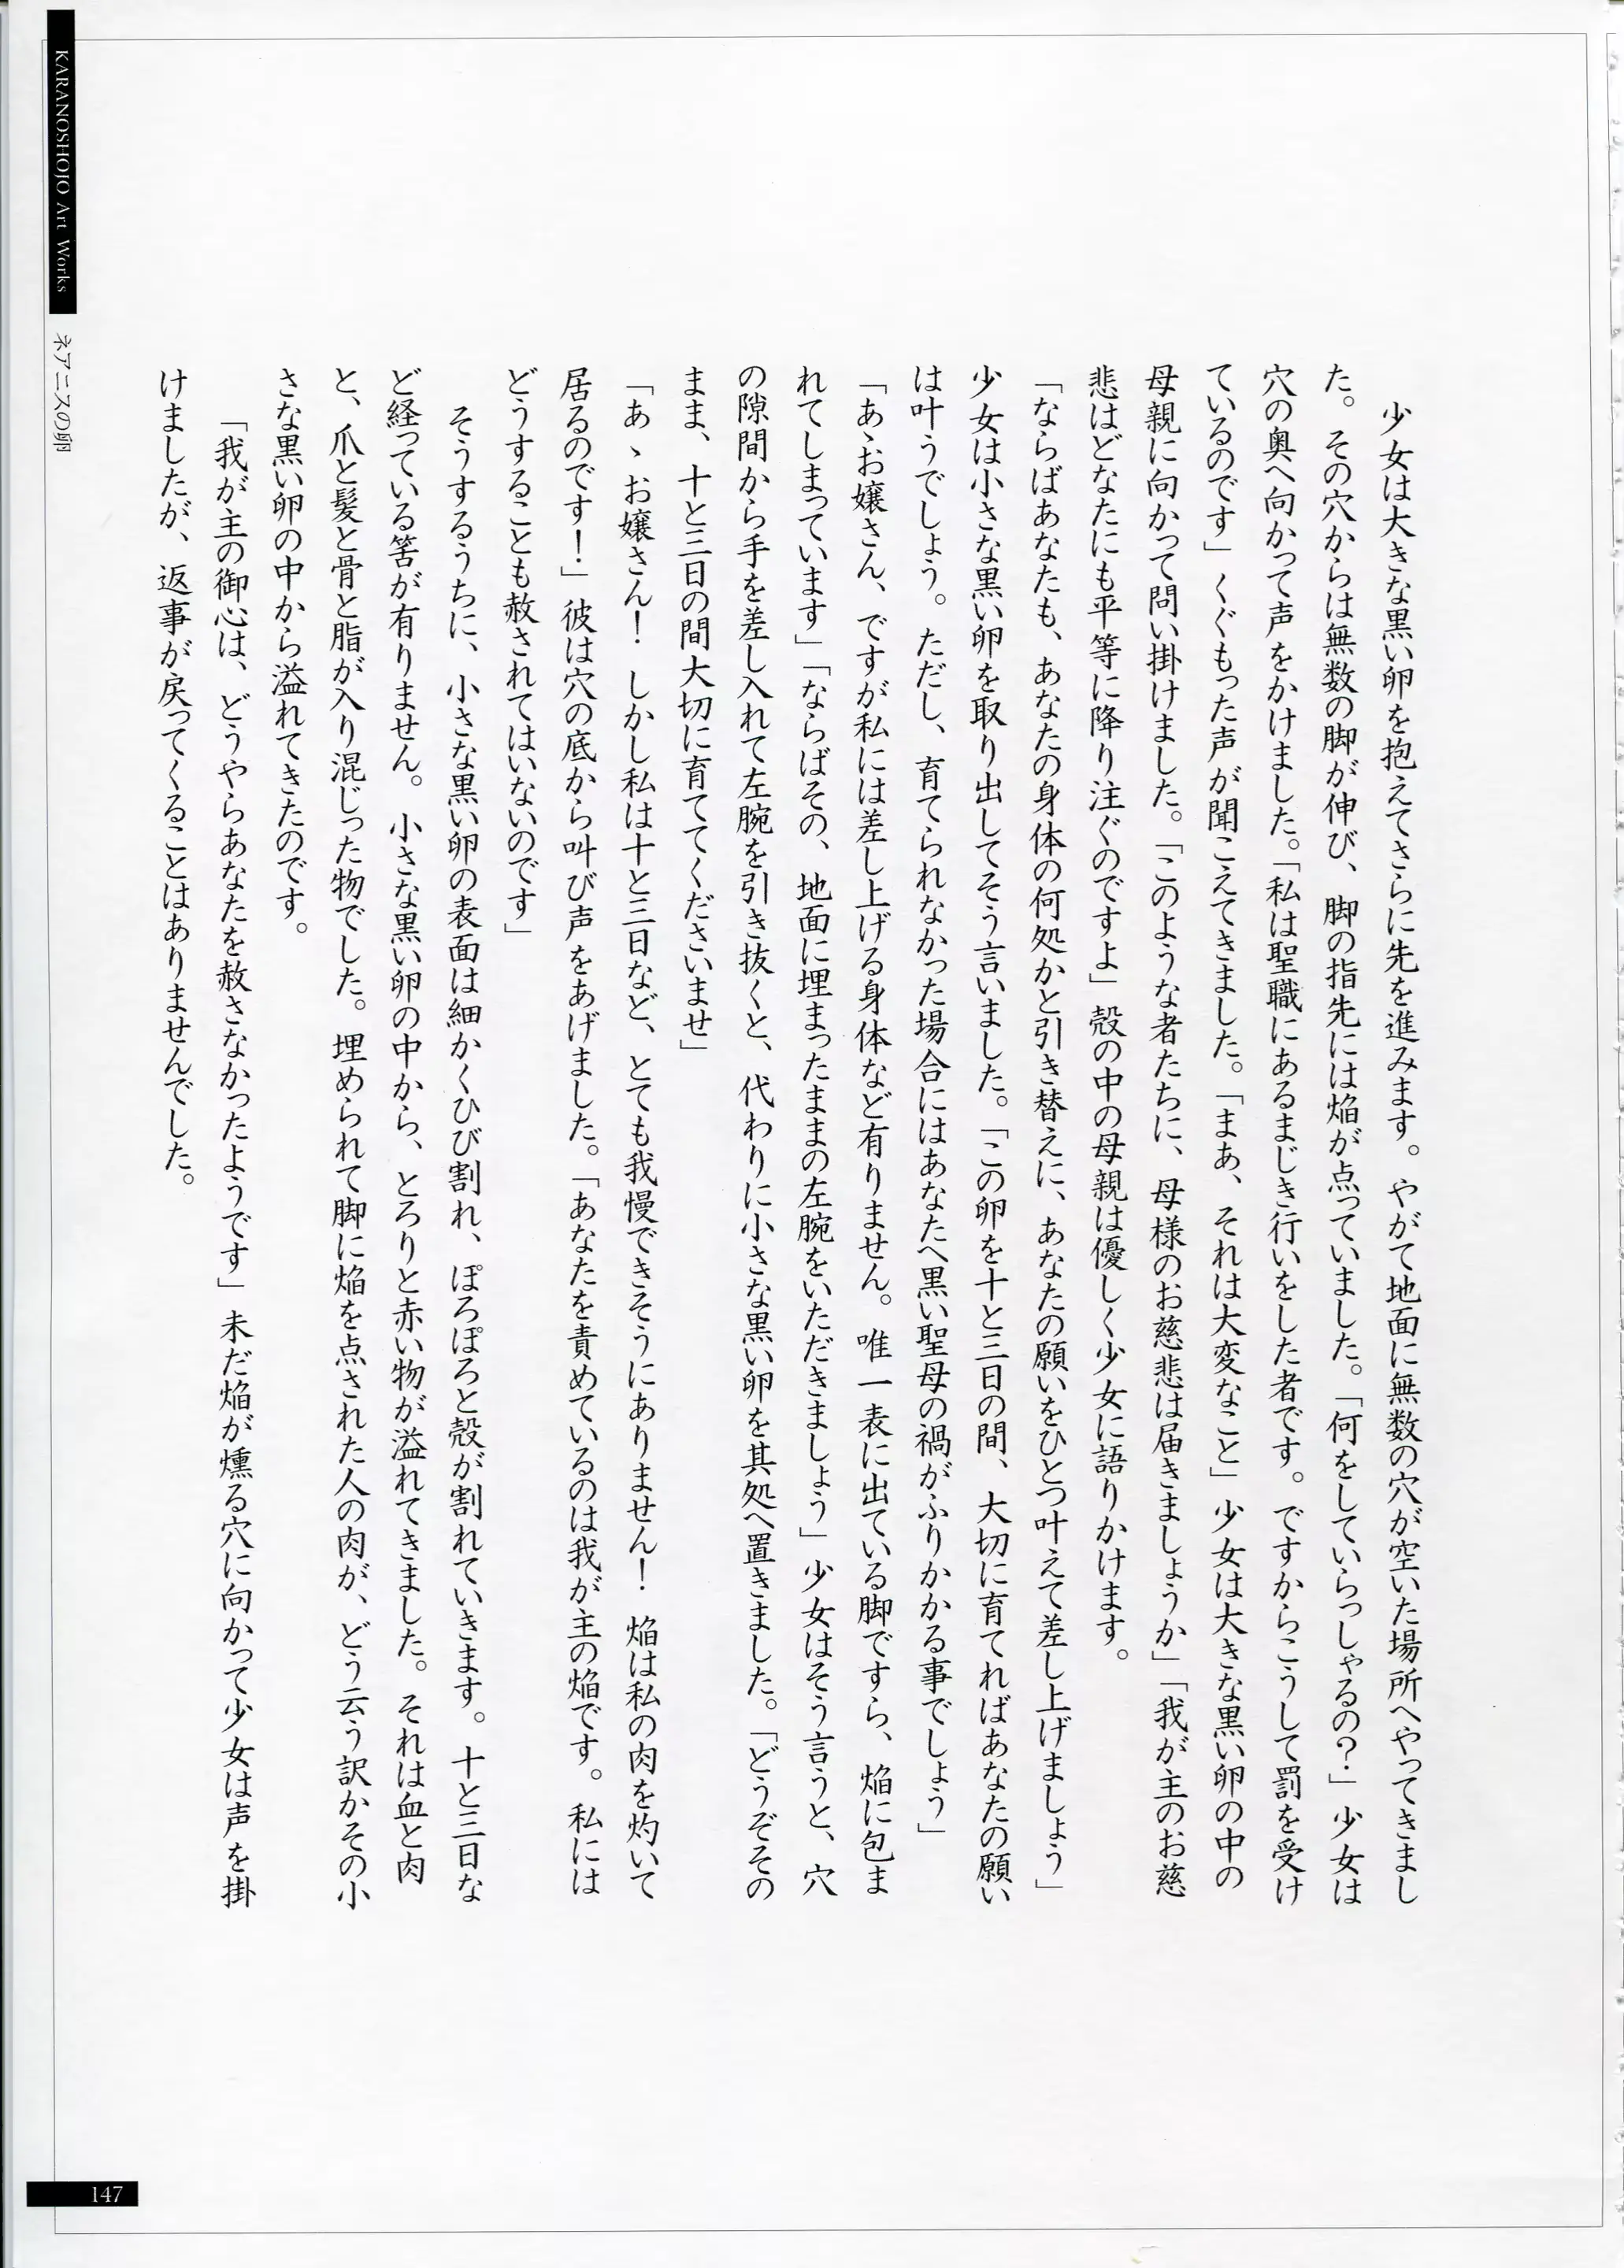 少女は大きな黒い卵を抱えてさらに先を進みます。やがて地面に無数の穴が空いた場所へやってきまし
た。その穴からは無数の脚が伸び、脚の指先には焔が点っていました。「何をしていらっしゃるの？」少女は
穴の奥へ向かって声をかけました。「私は聖職にあるまじき行いをした者です。ですからこうして罰を受け
ているのです」くぐもった声が聞こえてきました。「まあ、それは大変なこと」少女は大きな黒い卵の中の
母親に向かって問い掛けました。「このような者たちに、母様のお慈悲は届きましょうか」「我が主のお慈
悲はどなたにも平等に降り注ぐのですよ」殻の中の母親は優しく少女に語りかけます。
「ならばあなたも、あなたの身体の何処かと引き替えに、あなたの願いをひとつ叶えて差し上げましょう」
少女は小さな黒い卵を取り出してそう言いました。「この卵を十と三日の間、大切に育てればあなたの願い
は叶うでしょう。ただし、育てられなかった場合にはあなたへ黒い聖母の禍がふりかかる事でしょう」
「あゝお嬢さん、ですが私には差し上げる身体など有りません。唯一表に出ている脚ですら、焔に包ま
れてしまっています」「ならばその、地面に埋まったままの左腕をいただきましょう」少女はそう言うと、穴
の隙間から手を差し入れて左腕を引き抜くと、代わりに小さな黒い卵を其処へ置きました。「どうぞその
まま、十と三日の間大切に育ててくださいませ」
「あゝお嬢さん！ しかし私は十と三日など、とても我慢できそうにありません！ 焔は私の肉を灼いて
居るのです！」彼は穴の底から叫び声をあげました。「あなたを責めているのは我が主の焔です。私には
どうすることも赦されてはいないのです」
そうするうちに、小さな黒い卵の表面は細かくひび割れ、ぽろぽろと殻が割れていきます。十と三日な
ど経っている筈が有りません。小さな黒い卵の中から、とろりと赤い物が溢れてきました。それは血と肉
と、爪と髪と骨と脂が入り混じった物でした。埋められて脚に焔を点された人の肉が、どう云う訳かその小
さな黒い卵の中から溢れてきたのです。
「我が主の御心は、どうやらあなたを赦さなかったようです」未だ焔が燻る穴に向かって少女は声を掛
けましたが、返事が戻ってくることはありませんでした。
KARANOSHOJO Art Works
ネアニスの卵
147